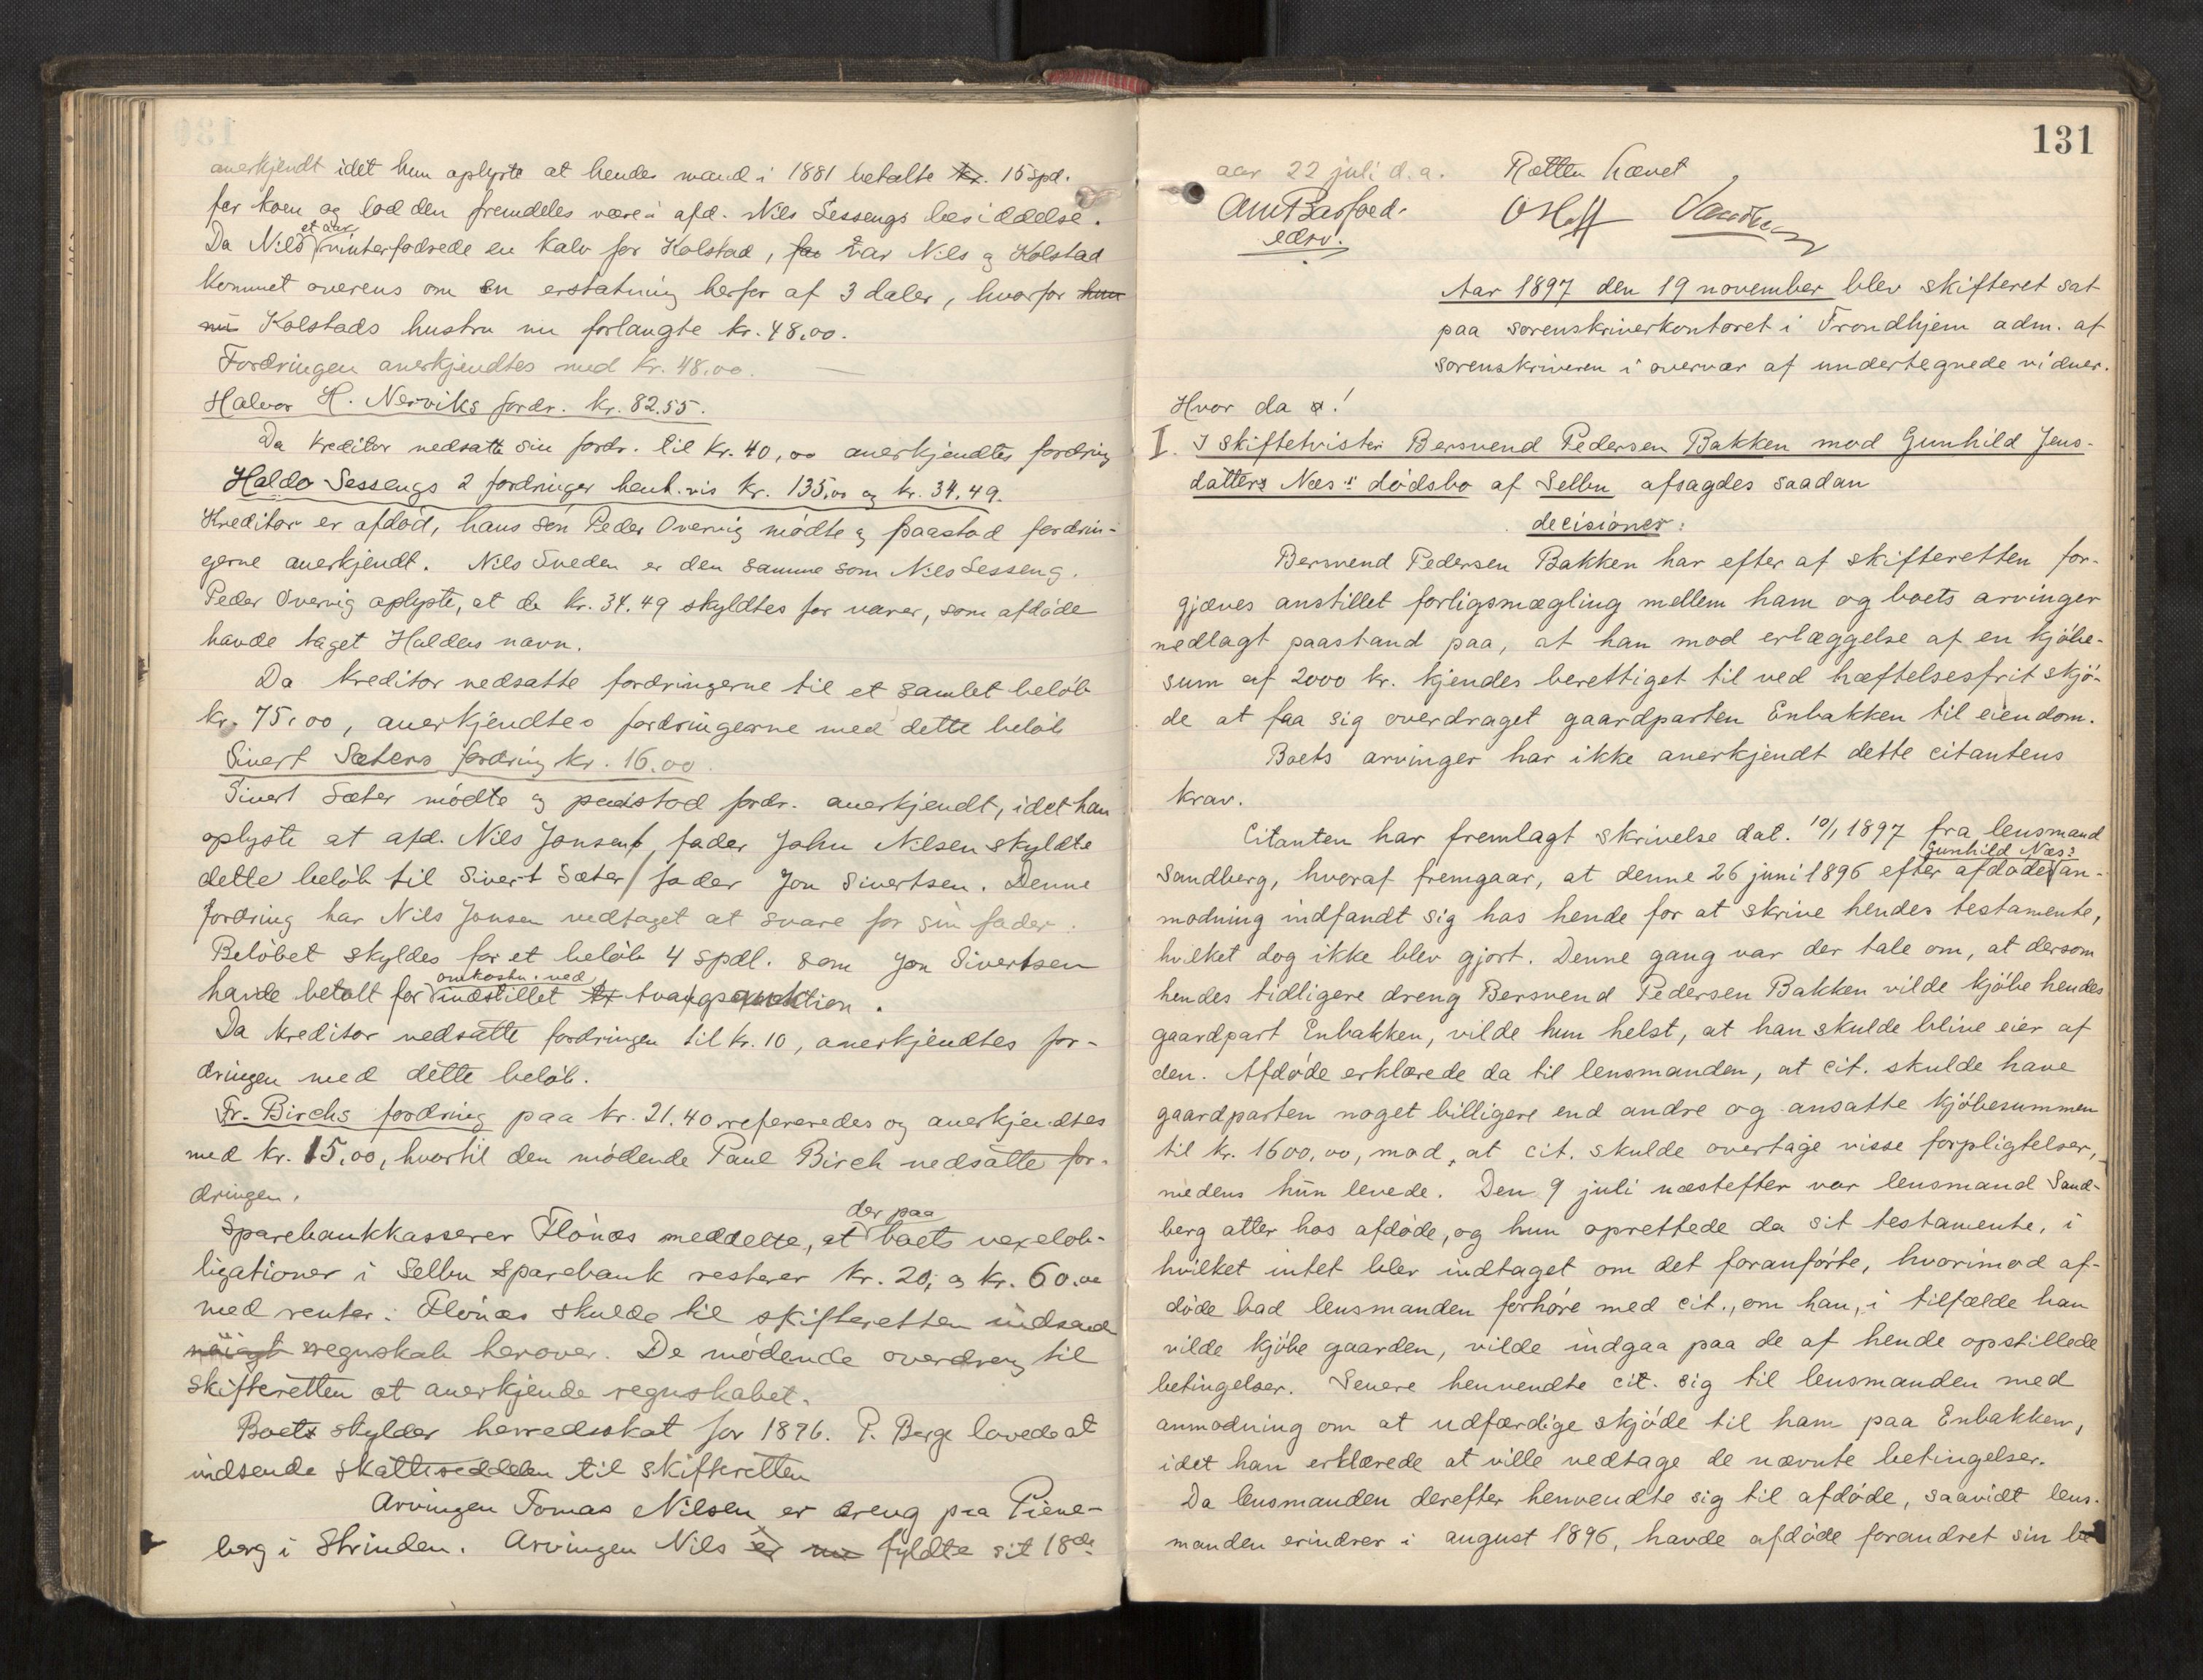 anerkjendt idet hun oplyste at hendes mand i 1881 betalte kr. 15 spd.
for koen og lod den fremdeles være i afd. Nils Sessengs besiddelse.
et aar
Da Nils vinterfodrede en kalv for Kolstad, var Nils og Kolstad
kommet overens om en erstatning herfor af 3 daler, hvorfor hun
nu Kolstads hustru nu forlangte kr. 48,00.
Fordringen anerkjendtes med kr. 48,00.
Halvor H. Nerviks fordr. kr. 82.55.
Da kreditor nedsatte sin fordr. til kr. 40,00 anerkjendtes fordring
Haldo Sessengs 2 fordringer henh.vis kr. 135,00 og kr. 34,49.
Kreditor er afdød, hans søn Peder Overvig mødte og paastod fordrin-
gerne anerkjendt. Nils Sveden er den samme som Nils Sesseng.
Peder Overvig oplyste, at de kr. 34.49 skyldtes for varer, som afdøde
havde taget Haldos navn.
Da kreditor nedsatte fordringerne til et samlet beløb
kr. 75,00, anerkjendtes fordringerne med dette beløb
Sivert Sæters fordring kr. 16.00.
Sivert Sæter mødte og paastod fordr. anerkjendt, idet han
oplyste at afd. Nils Jonsens fader John Nilsen skyldte
dette beløb til Sivert Sæter fader Jon Sivertsen. Denne
fordring har Nils Jonsen vedtaget at svare for sin fader.
Beløbet skyldes for et beløb 4 spdl. som Jon Sivertsen
omkostn. ved
havde betalt for indstillet tvangsauktion.
Da kreditor nedsatte fordringen til kr. 10, anerkjendtes for-
dringen med dette beløb.
Fr. Birchs fordring paa kr. 21.40 refereredes og anerkjendtes
med kr. 15,00, hvortil den mødende Paul Birch nedsatte for-
dringen.
der paa
Sparebankkasserer Flønæs meddelte, at boets vexelob-
ligationer i Selbu Sparebank resterer kr. 20, og kr. 60.00
med renter. Flønæs skulde til skifteretten indsende
nøiagt regnskab herover. De mødende overdrog til
skifteretten at anerkjende regnskabet.
Boets skylder herredsskat for 1896. P. Berge lovede at
indsende skatteseddelen til skifteretten
Arvingen Tomas Nilsen er dreng paa Piene-
berg i Strinden. Arvingen Nils er nu fyldte sit 18de
131
aar 22 juli d.a. Retten hævet
edsv.
Aar 1897 den 19 november blev skifteret sat
paa sorenskriverkontoret i Trondhjem adm. af
sorenskriveren i overvær af undertegnede vidner.
Hvor da!
I. I skiftetvisten Bersvend Pedersen Bakken mod Gunhild Jens-
datters Næs's dødsbo af Selbu afsagdes saadan
decisioner:
Bersvend Pedersen Bakken har efter af skifteretten for-
gjæves anstillet forligsmægling mellem ham og boets arvinger
nedlagt paastand paa, at han mod erlæggelse af en kjøbe-
sum af 2000 kr. kjendes berettiget til ved hæftelsesfrit skjø-
de at faa sig overdraget gaardparten Enbakken til eiendom.
Boets arvinger har ikke anerkjendt dette citantens
krav.
Citanten har fremlagt skrivelse dat. 10/1 1897 fra lensmand
Gunhild Næs's
Sandberg, hvoraf fremgaar, at denne 26 juni 1896 efter afdøde an-
modning indfandt sig hos hende for at skrive hendes testamente,
hvilket dog ikke blev gjort. Denne gang var der tale om, at dersom
hendes tidligere dreng Bersvend Pedersen Bakken vilde kjøbe hendes
gaardpart Enbakken, vilde hun helst, at han skulde blive eier af
den. Afdøde erklærede da til lensmanden, at cit. skulde have
gaardparten noget billigere end andre og ansatte kjøbesummen
til kr. 1600,00, mod, at cit. skulde overtage visse forpligtelser,
medens hun levede. Den 9 juli næstefter var lensmand Sand-
berg atter hos afdøde, og hun oprettede da sit testamente, i
hvilket intet blev indtaget om det foranførte, hvorimod af-
døde bad lensmanden forhøre med cit., om han, i tilfælde han
vilde kjøbe gaarden, vilde indgaa paa de af hende opstillede
betingelser. Senere henvendte cit. sig til lensmanden med
anmodning om at udfærdige skjøde til ham paa Enbakken,
idet han erklærede at ville vedtage de nævnte betingelser.
Da lensmanden derefter henvendte sig til afdøde, saavidt lens-
manden erindrer i august 1896, havde afdøde forandret sin be